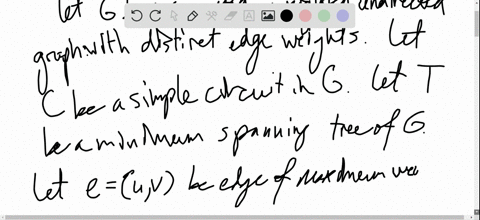 let G
graph with distinct edge weights. Let
C be a simple circuit in G. let T
be a minimum spanning tree of G.
Let e = (u,v) be edge of maximum we